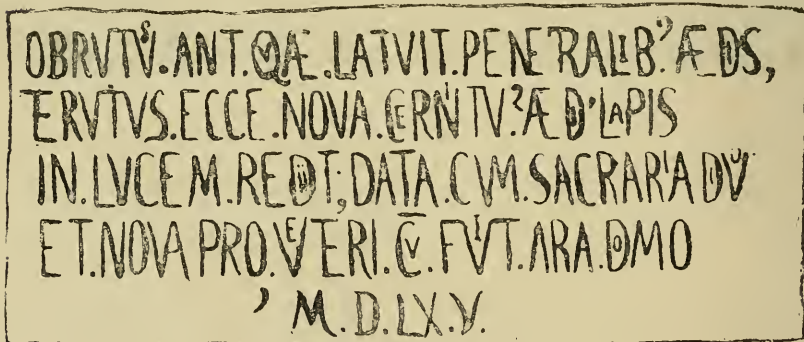 OBRVTVS.ANT.QVÆ.LATVIT.PENETRALIB⁹.ÆDIS,
ERVTVS.ECCE.NOVA.CERNITVR.ÆDE.LAPIS
IN.LVCEM.REDIIT;DATA.CVM.SACRARIA DIVV
ET.NOVA PRO.VETERI.CV̄.FVIT.ARA.DOMO
M.D.LX.V.